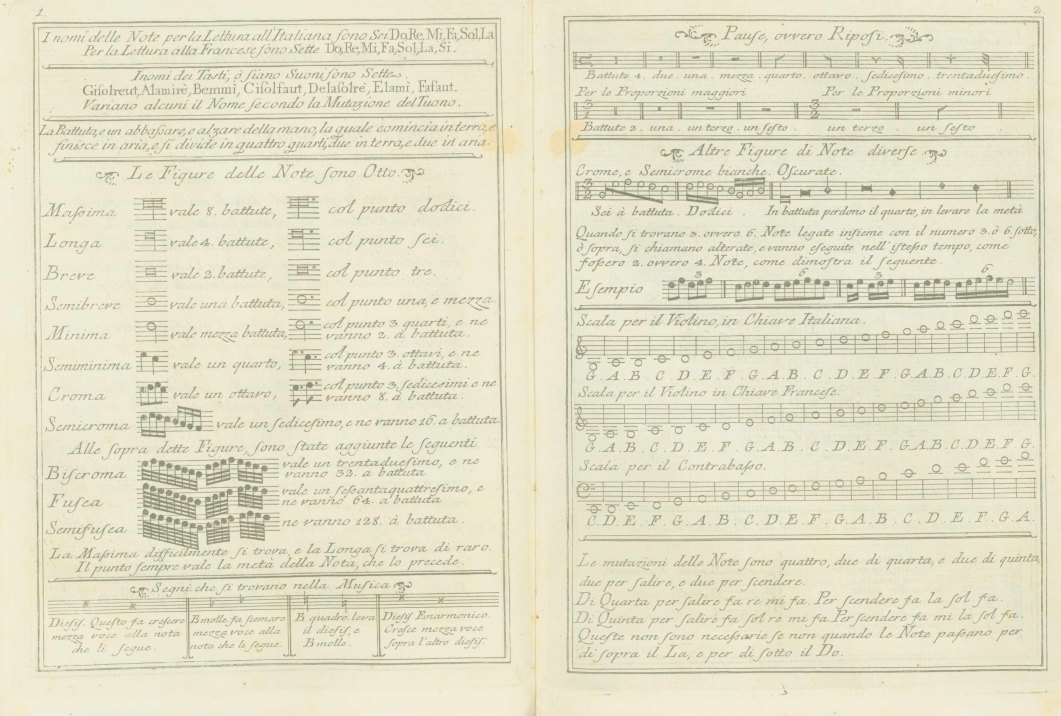 1.
I nomi delle Note per la Lettura all'Italiana sono Sei Do, Re, Mi, Fa, Sol, La
Per la Lettura alla Francese sono Sette Do, Re, Mi, Fa, Sol, La, Si.
I nomi dei Tasti, ò siano Suoni sono Sette.
Gisolreut, Alamirè, Bemmi, Cisolfaut, Delasolre, Elami, Fafaut.
Variano alcuni il Nome secondo la Mutazione del Tuono.
La Battuta, e un abbassare, e alzare della mano, la quale comincia in terra, e
finisce in aria, e si divide in quattro quarti, due in terra, e due in aria.
Le Figure delle Note sono Otto.
Massima vale 8. battute, col punto dodici.
Longa vale 4. battute, col punto sei.
Breve vale 2. battute, col punto tre.
Semibreve vale una battuta, col punto una, e mezza.
Minima vale mezza battuta, col punto 3 quarti, e ne
vanno 2. a battuta.
Semiminima vale un quarto, col punto 3. ottavi, e ne
vanno 4. à battuta.
Croma vale un ottavo, col punto 3. sedicesimi e ne
vanno 8. à battuta.
Semicroma vale un sedicesimo, e ne vanno 16. a battuta
Alle sopra dette Figure, sono state aggiunte le seguenti
Biscroma vale un trentaduesimo, e ne
vanno 32. a battuta
Fusea vale un sessantaquattresimo, e
ne vanno 64. a battuta
Semifusea ne vanno 128. à battuta.
La Massima difficilmente si trova, e la Longa si trova di raro.
Il punto sempre vale la metà della Nota, che lo precede.
Segni che si trovano nella Musica
Diesis. Questo fa crescere
mezza voce alla nota
che li segue.
B molle fa scemare
mezza voce alla
nota che li segue.
B quadro leva
il diesis, e
B molle.
Diesis Enarmonico.
Cresce mezza voce
sopra l'altro diesis.
2.
Pause, ovvero Riposi.
Battute 4. due. una. mezza. quarto. ottavo. sedicesimo. trentaduesimo.
Per le Proporzioni maggiori Per le Proporzioni minori
Battute 2. una. un terzo. un sesto un terzo. un sesto
Altre Figure di Note diverse.
Crome, e Semicrome bianche. Oscurate.
Sei à battuta. Dodici. In battuta perdono il quarto, in levare la metà
Quando si trovano 3. ovvero 6. Note legate insieme con il numero 3. ò 6. sotto,
ò sopra, si chiamano alterate, e vanno eseguite nell'istesso tempo, come
fossero 2. ovvero 4. Note, come dimostra il seguente.
Esempio 3 6 3 6
Scala per il Violino, in Chiave Italiana.
G. A. B. C. D. E. F. G. A. B. C. D. E. F. G. A. B. C. D. E. F. G.
Scala per il Violino in Chiave Francese.
G. A. B. C. D. E. F. G. A. B. C. D. E. F. G. A. B. C. D. E. F. G.
Scala per il Contrabasso.
C. D. E. F. G. A. B. C. D. E. F. G. A. B. C. D. E. F. G. A.
Le mutazioni delle Note sono quattro, due di quarta, e due di quinta,
due per salire, e due per scendere.
Di Quarta per salire fa re mi fa. Per scendere fa la sol fa.
Di Quinta per salire fa sol re mi fa. Per scendere fa mi la sol fa.
Queste non sono necessarie se non quando le Note passano per
di sopra il La, e per di sotto il Do.